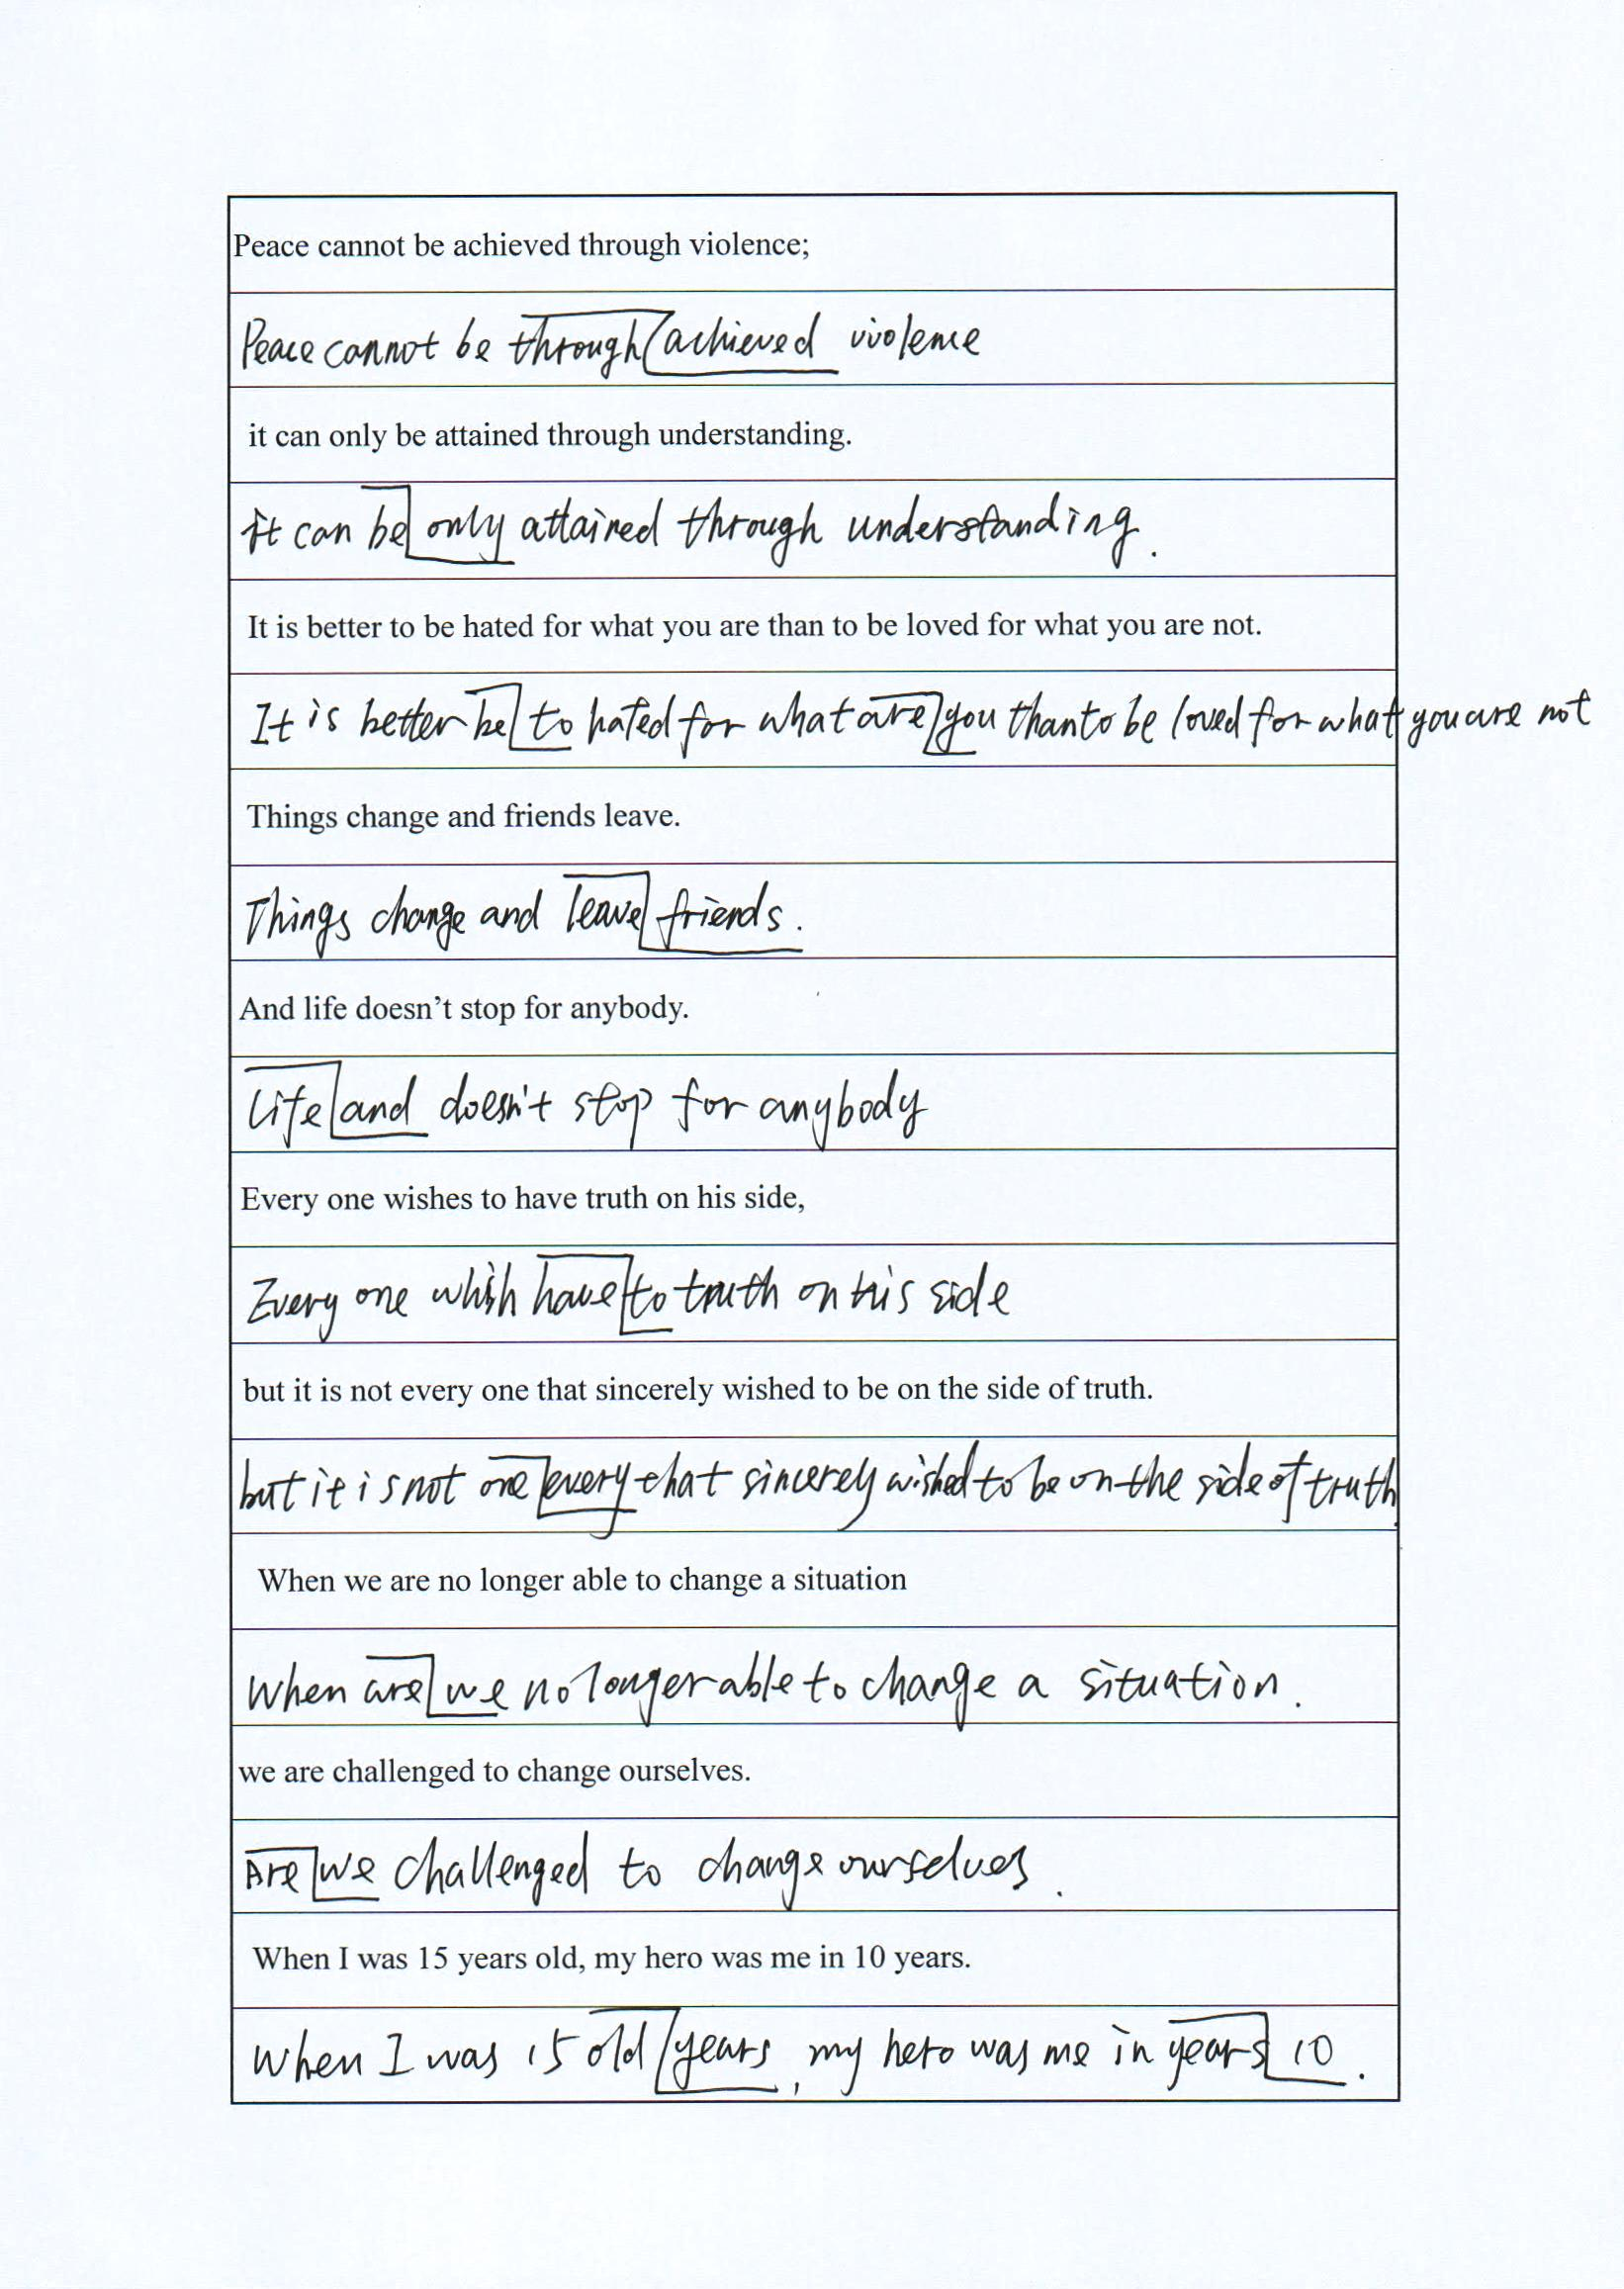 Peace cannot be achieved through violence;
Peace cannot be through achieved violence
it can only be attained through understanding.
it can be only attained through understanding.
It is better to be hated for what you are than to be loved for what you are not.
It is better be to hated for what are you than to be loved for what you are not
Things change and friends leave.
Things change and leave friends.
And life doesn’t stop for anybody.
Life and doesn't stop for anybody
Every one wishes to have truth on his side,
Every one whish have to truth on his side
but it is not every one that sincerely wished to be on the side of truth.
but it is not one every that sincerely wished to be on the side of truth.
When we are no longer able to change a situation
When are we no longer able to change a situation.
we are challenged to change ourselves.
Are we challenged to change ourselves.
When I was 15 years old, my hero was me in 10 years.
When I was 15 old years, my hero was me in years 10.